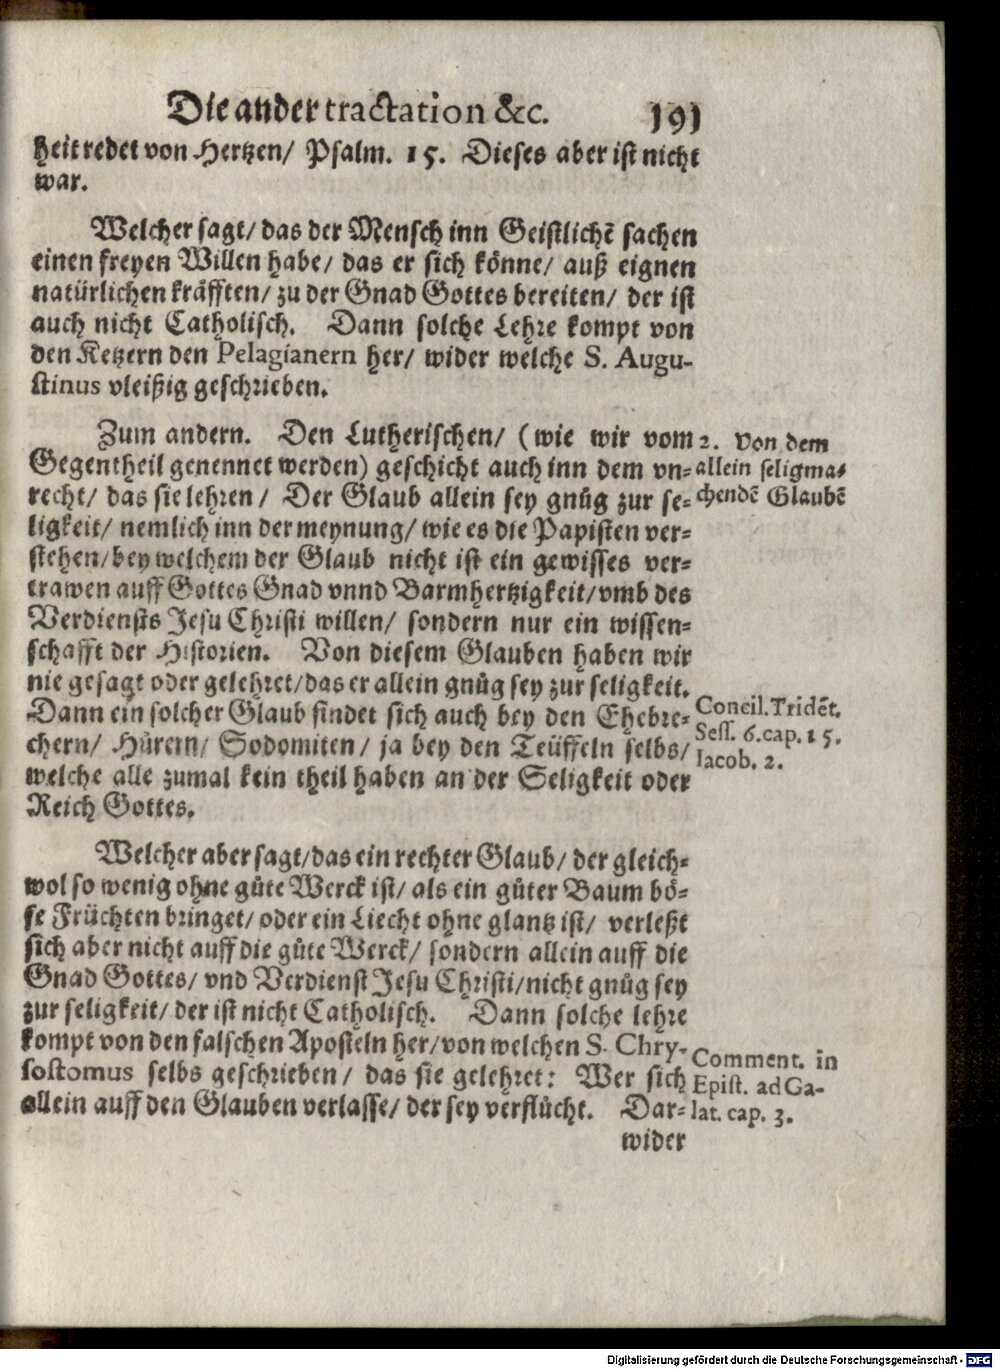 Die ander tractation &c. 191
heit redet von Hertzen/ Psalm. 15. Dieses aber ist nicht
war.
Welcher sagt/ das der Mensch inn Geistlichẽ sachen
einen freyen Willen habe/ das er sich könne/ auß eignen
natürlichen kräfften/ zu der Gnad Gottes bereiten/ der ist
auch nicht Catholisch. Dann solche Lehre kompt von
den Ketzern den Pelagianern her/ wider welche S. Augu-
stinus vleißig geschrieben.
Zum andern. Den Lutherischen/ (wie wir vom
Gegentheil genennet werden) geschicht auch inn dem vn-
recht/ das sie lehren/ Der Glaub allein sey gnůg zur se-
ligkeit/ nemlich inn der meynung/ wie es die Papisten ver-
stehen/ bey welchem der Glaub nicht ist ein gewisses ver-
trawen auff Gottes Gnad vnnd Barmhertzigkeit/ vmb des
Verdiensts Jesu Christi willen/ sondern nur ein wissen-
schafft der Historien. Von diesem Glauben haben wir
nie gesagt oder gelehret/ das er allein gnůg sey zur seligkeit.
Dann ein solcher Glaub findet sich auch bey den Ehebre-
chern/ Hůrern/ Sodomiten/ ja bey den Teüffeln selbs/
welche alle zumal kein theil haben an der Seligkeit oder
Reich Gottes.
2. Von dem
allein seligma-
chendẽ Glaubẽ
Concil. Tridẽt.
Sess. 6. cap. 15.
Iacob. 2.
Welcher aber sagt/ das ein rechter Glaub/ der gleich-
wol so wenig ohne gůte Werck ist/ als ein gůter Baum bö-
se Früchten bringet/ oder ein Liecht ohne glantz ist/ verleßt
sich aber nicht auff die gůte Werck/ sondern allein auff die
Gnad Gottes/ vnd Verdienst Jesu Christi/ nicht gnůg sey
zur seligkeit/ der ist nicht Catholisch. Dann solche lehre
kompt von den falschen Aposteln her/ von welchen S. Chry-
sostomus selbs geschrieben/ das sie gelehret: Wer sich
allein auff den Glauben verlasse/ der sey verflůcht. Dar-
wider
Comment. in
Epist. ad Ga-
lat. cap. 3.
Digitalisierung gefördert durch die Deutsche Forschungsgemeinschaft - DFG